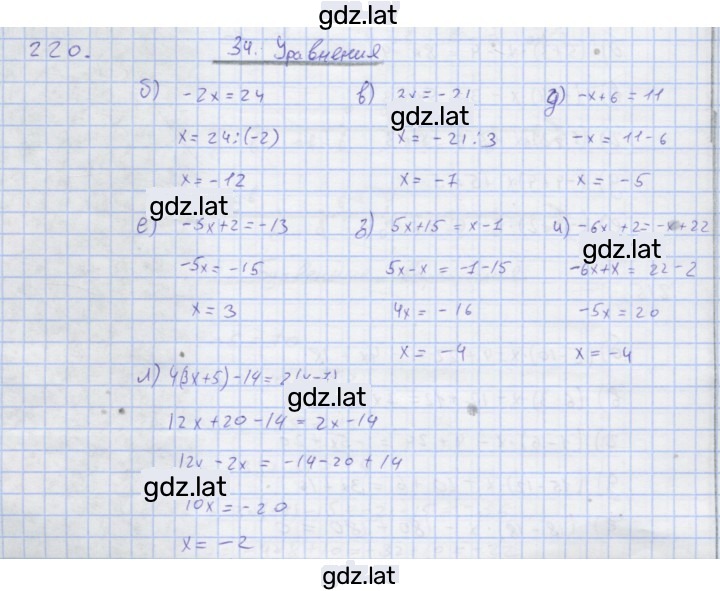 gdz.lat
220. 34. Уравнения
б) -2x = 24
x = 24 : (-2)
x = -12
в)
gdz.lat
x = -21 : 3
x = -7
д) -x + 6 = 11
-x = 11 - 6
x = -5
gdz.lat
е) -5x + 2 = -13
-5x = -15
x = 3
з) 5x + 15 = x - 1
5x - x = -1 - 15
4x = -16
x = -4
и) -6x + 2 = -x + 22
gdz.lat
-6x + x = 22 - 2
-5x = 20
x = -4
л) 4(3x + 5) - 14 =
gdz.lat
12x + 20 - 14 = 2x - 14
12x - 2x = -14 - 20 + 14
gdz.lat
10x = -20
x = -2
gdz.lat